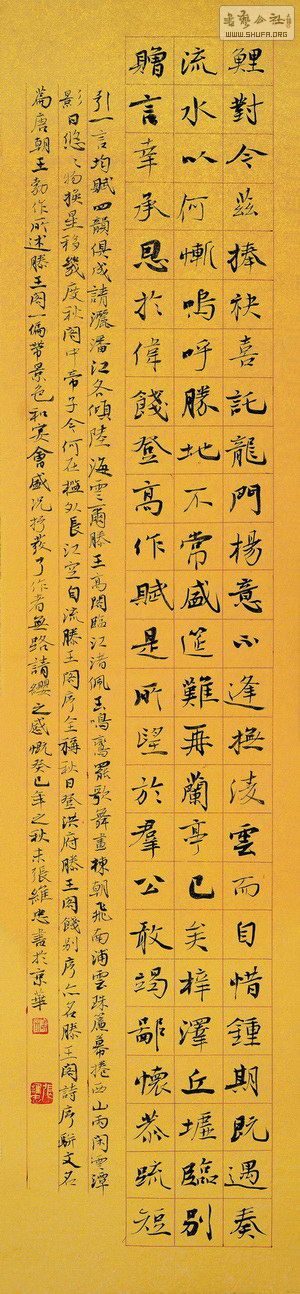 书艺公社
WWW.SHUFA.ORG
鯉對今茲捧袂喜託龍門楊意不逢撫凌雲而自惜鍾期既遇奏
流水以何慚嗚呼勝地不常盛筵難再蘭亭已矣梓澤丘墟臨別
贈言幸承恩於偉餞登高作賦是所望於羣公敢竭鄙懷恭疏短
引一言均賦四韻俱成請灑潘江各傾陸海雲爾滕王高閣臨江渚佩玉鳴鸞罷歌舞畫棟朝飛南浦雲珠簾暮捲西山雨閑雲潭
影日悠〻物換星移幾度秋閣中帝子今何在檻外長江空自流滕王閣序全稱秋日登洪府滕王閣餞別序亦名滕王閣詩序駢文名
篇唐朝王勃作所述滕王閣一偏帶景色和宴會盛況抒發了作者無路請纓之感慨癸巳年之秋末張維忠書於京華